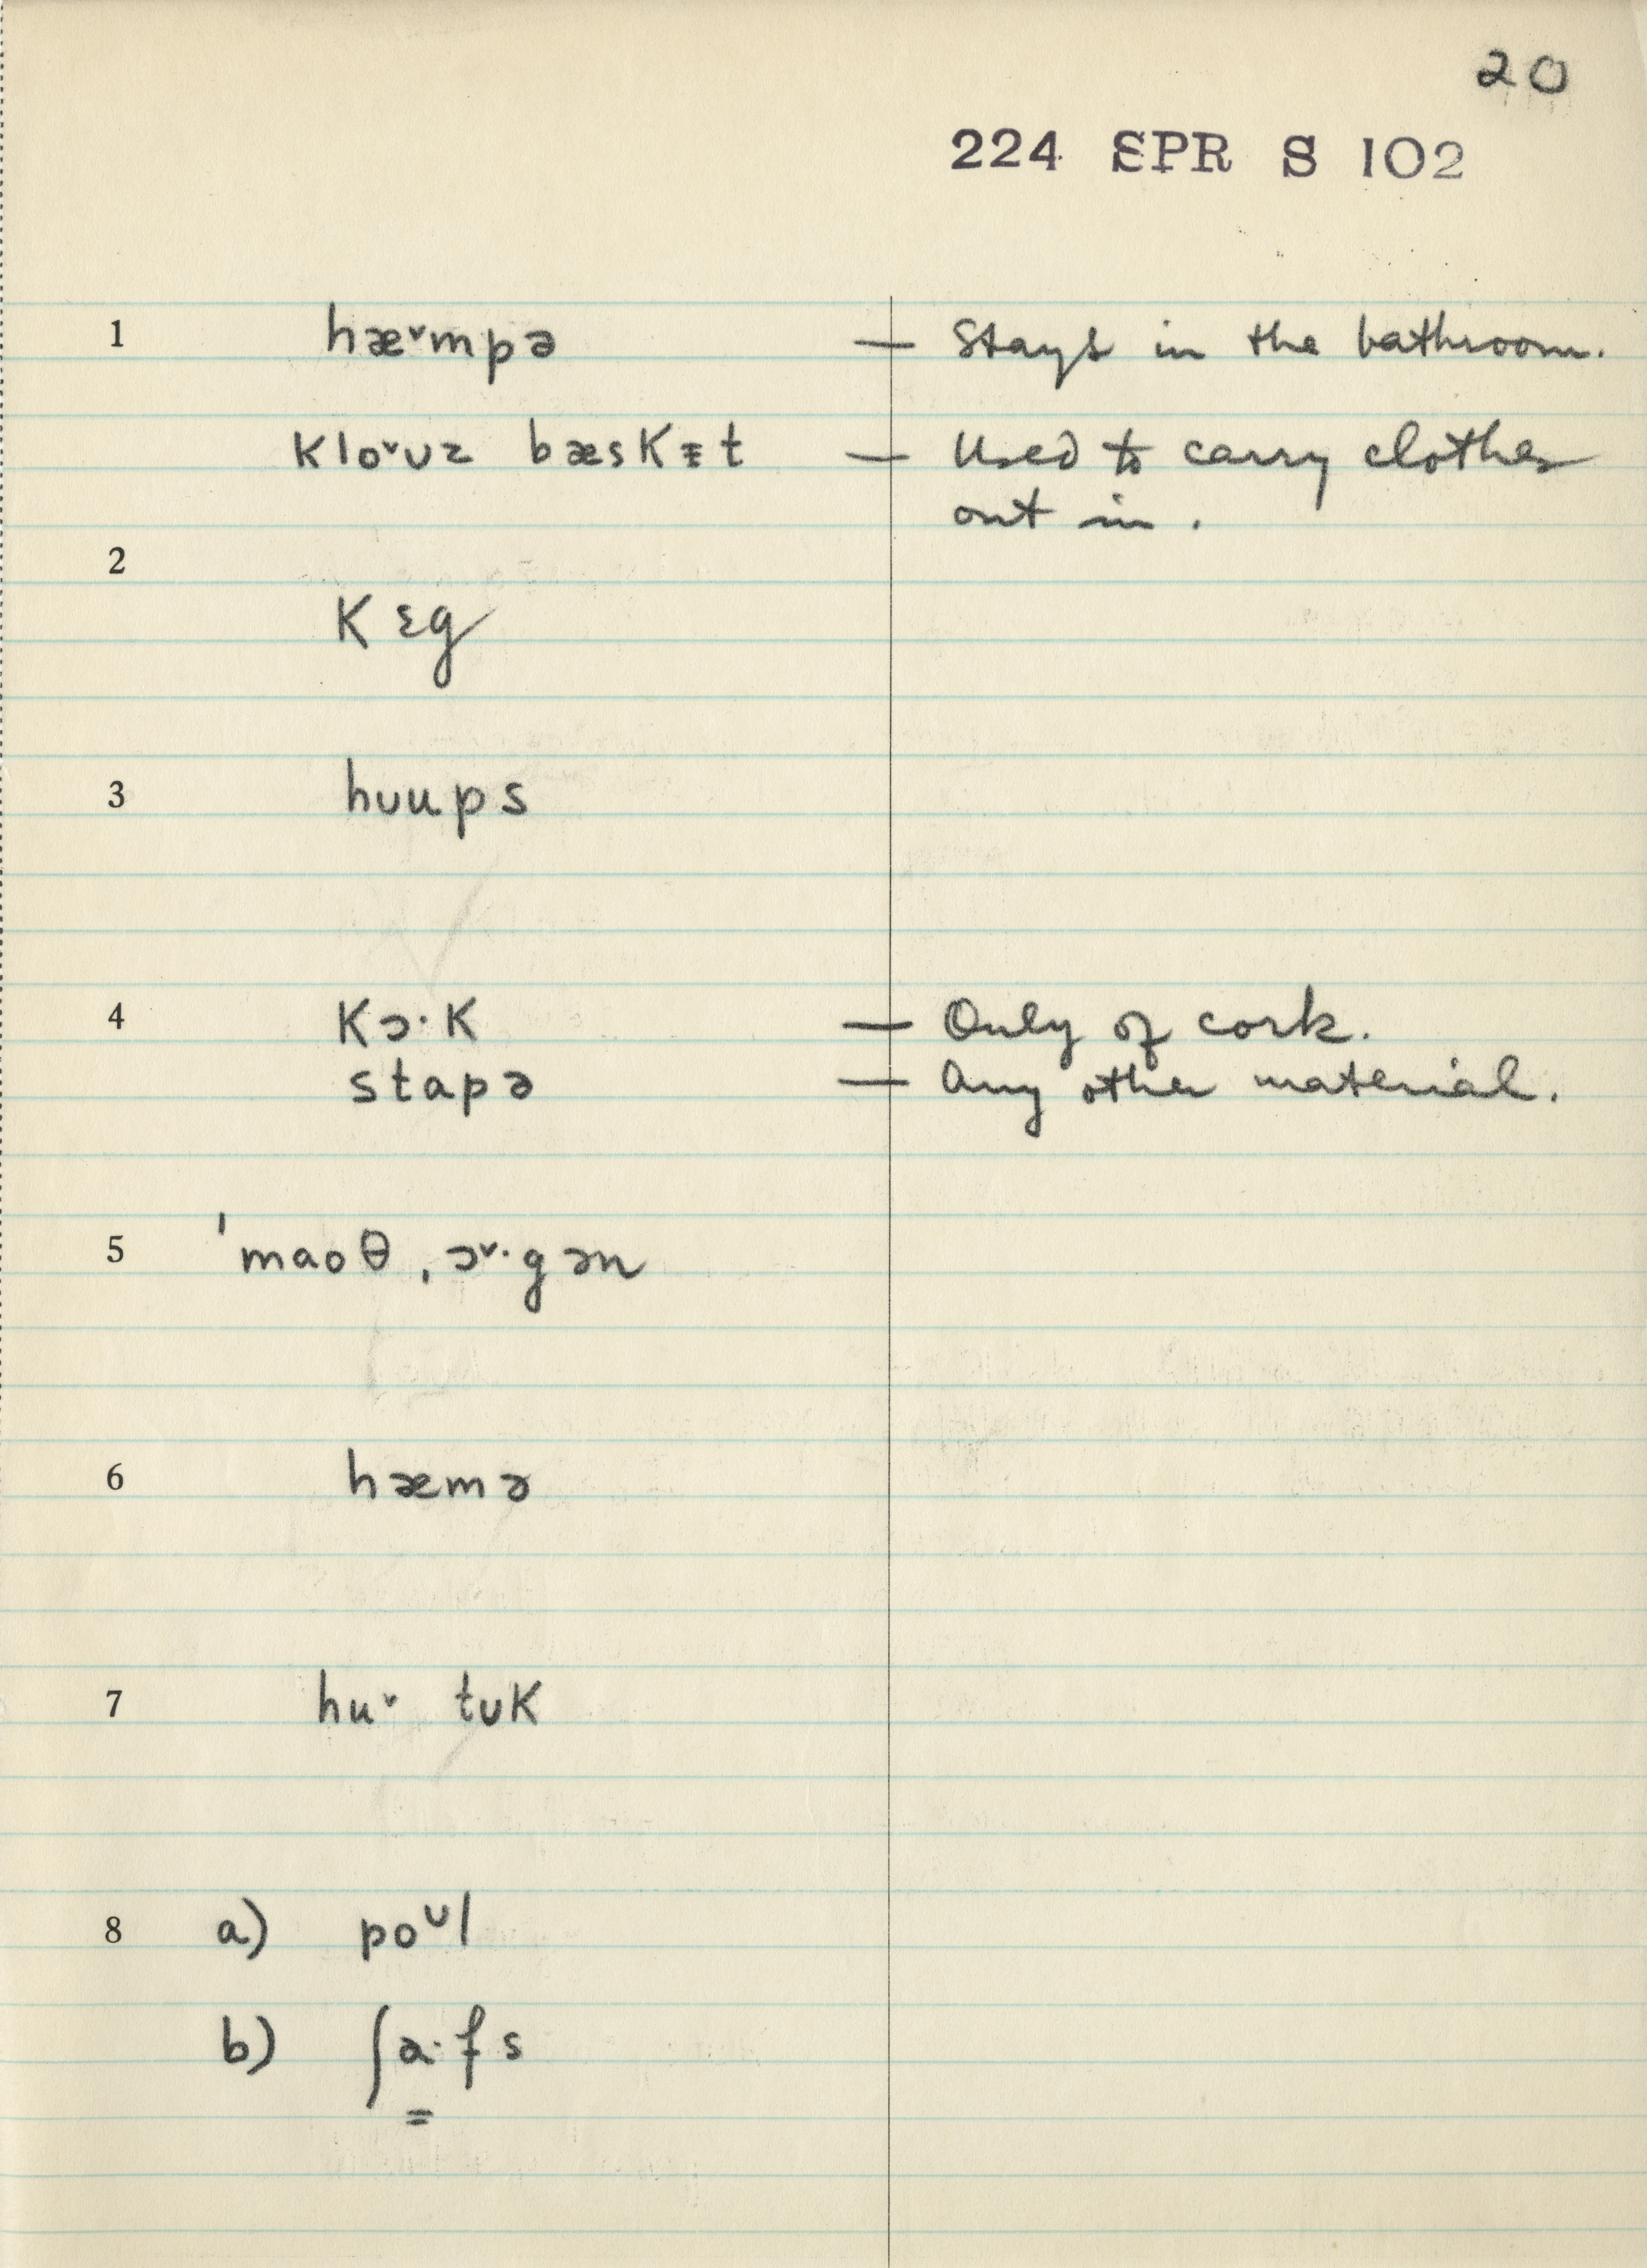 20
224 SPR S 102
1 hæ˅mpə — Stays in the bathroom.
klo˅ʊz bæskɪ̵t — Used to carry clothes
out in.
2
kɛg
3 hʊups
4 kɔ·k — Only of cork.
stapə — Any other material.
5 ˈmaoθ ˌɔ˅·gən
6 hæmə
7 hu˅ tʊk
8 a) poᶷl
b) ʃa̳·fs